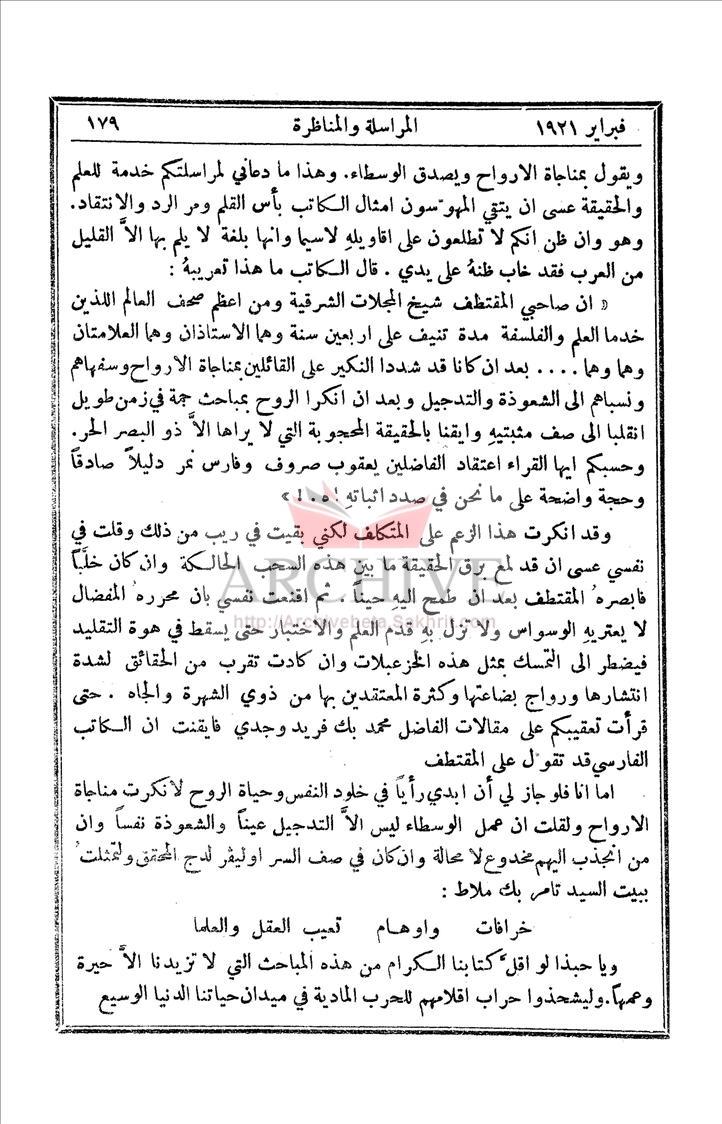 فبراير ١٩٢١ المراسلة والمناظرة ١٧٩
ويقول بمناجاة الارواح ويصدق الوسطاء. وهذا ما دعاني لمراسلتكم خدمة للعلم
والحقيقة عسى ان يتقي المهوّسون امثال الكاتب بأس القلم ومر الرد والانتقاد.
وهو وان ظن انكم لا تطلعون على اقاويلهِ لاسيما وانها بلغة لا يلم بها الاَّ القليل
من العرب فقد خاب ظنهُ على يدي . قال الكاتب ما هذا تعريبهُ :
« ان صاحبي المقتطف شيخ المجلات الشرقية ومن اعظم صحف العالم اللذين
خدما العلم والفلسفة مدة تنيف على اربعين سنة وهما الاستاذان وهما العلامتان
وهما وهما .... بعد ان كانا قد شددا النكير على القائلين بمناجاة الارواح وسفهاهم
ونسباهم الى الشعوذة والتدجيل وبعد ان انكرا الروح بمباحث جمة في زمن طويل
انقلبا الى صف مثبتيهِ وايقنا بالحقيقة المحجوبة التي لا يراها الاَّ ذو البصر الحر.
وحسبكم ايها القراء اعتقاد الفاضلين يعقوب صروف وفارس نمر دليلاً صادقاً
وحجة واضحة على ما نحن في صدد اثباتهِ ! ه . ! »
وقد انكرت هذا الزعم على المتكلف لكني بقيت في ريب من ذلك وقلت في
نفسي عسى ان قد لمع برق الحقيقة ما بين هذه السحب الحالكة وان كان خلَّباً
فابصرهُ المقتطف بعد ان طمح اليهِ حيناً . ثم اقنعت نفسي بان محررهُ المفضال
لا يعتريهِ الوسواس ولا تزل بهِ قدم العلم والاختبار حتى يسقط في هوة التقليد
فيضطر الى التمسك بمثل هذه الخزعبلات وان كادت تقرب من الحقائق لشدة
انتشارها ورواج بضاعتها وكثرة المعتقدين بها من ذوي الشهرة والجاه . حتى
قرأت تعقيبكم على مقالات الفاضل محمد بك فريد وجدي فايقنت ان الكاتب
الفارسي قد تقوّل على المقتطف
اما انا فلو جاز لي أن ابدي رأياً في خلود النفس وحياة الروح لأنكرت مناجاة
الارواح ولقلت ان عمل الوسطاء ليس الاَّ التدجيل عيناً والشعوذة نفساً وان
من انجذب اليهم مخدوع لا محالة وان كان في صف السر اوليڤر لدج المحقق ولتمثلت
ببيت السيد تامر بك ملاط :
خرافات واوهام تعيب العقل والعلما
ويا حبذا لو اقلَّ كتابنا الكرام من هذه المباحث التي لا تزيدنا الاَّ حيرة
وعمهاً. وليشحذوا حراب اقلامهم للحرب المادية في ميدان حياتنا الدنيا الوسيع
ARCHIVE
http://Archivebeta.Sakhrit.com